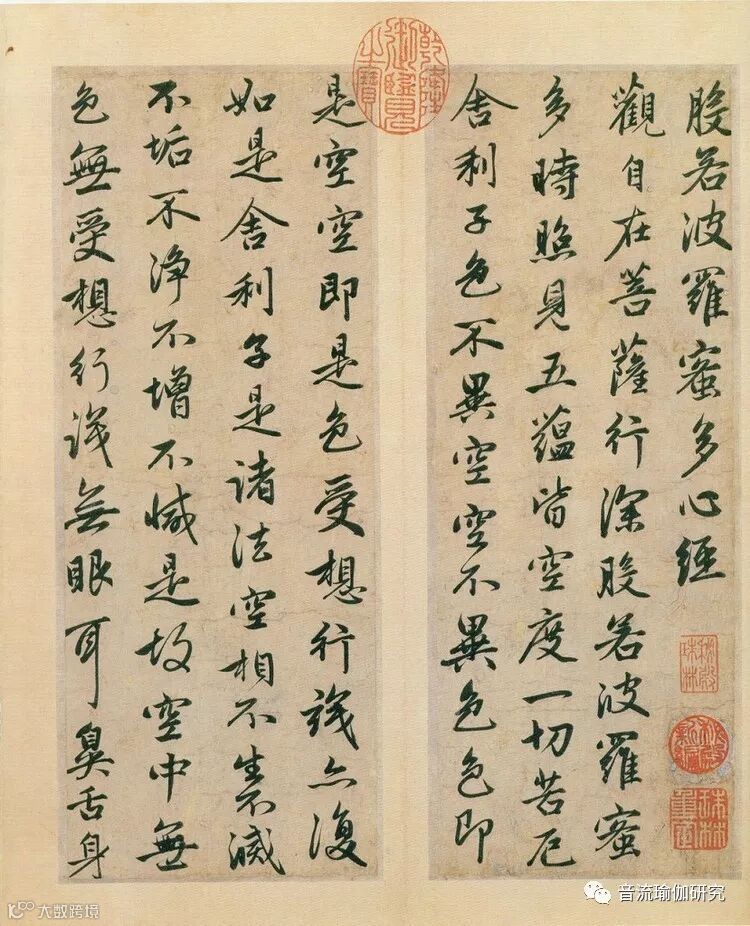 般若波羅蜜多心經
觀自在菩薩行深般若波羅蜜
多時照見五蘊皆空度一切苦厄
舍利子色不異空空不異色色即
是空空即是色受想行識亦復
如是舍利子是諸法空相不生不滅
不垢不淨不增不減是故空中無
色無受想行識無眼耳鼻舌身
乾隆御覽之寶
秘殿珠林
秘殿新編
珠林重定
音流瑜伽研究
大数跨境